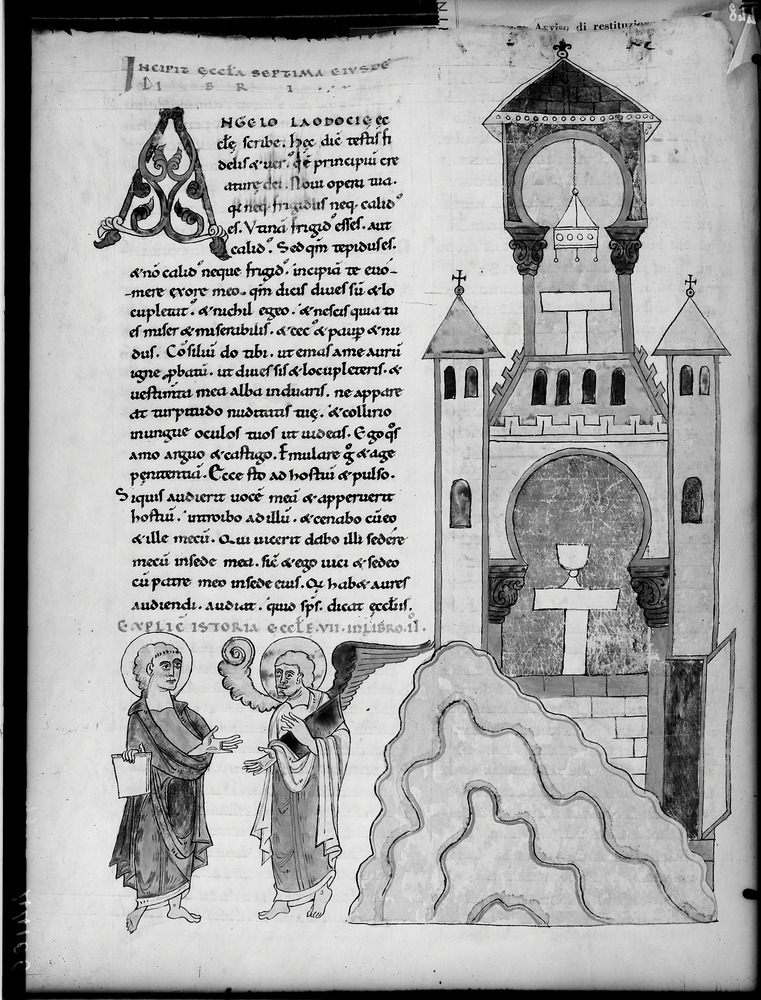 Avviso di restituzio
INCIPIT ECCLA SEPTIMA EIUSDE
LIBRI
ANGELO LAODOCIĘ ĘC
clę scribe. hęc dic̄ testis fi
delis & uer᾿. q̄ ē principiū cre
aturę dei. Noui opera tua.
q̄ neq, frigidus neq, calid᾿
es. Utinā frigid᾿ esses. aut
calid᾿. Sed qm̄ tepidus es.
& nō calid᾿ neque frigid᾿. incipiā te euo-
mere ex ore meo. qm̄ dicis diues sū & lo
cupletat᾿. & nichil egeo. & nescis quia tu
es miser & miserabilis. & cęc᾿ & paup̄ & nu
dus. Cōsiliū do tibi. ut emas a me aurū
igne ꝓbatū. ut diues sis & locupleteris. &
uestimta mea alba induaris. ne appare
at turpitudo nuditatis tuę. & collirio
inungue oculos tuos ut uideas. Ego q̄s
amo arguo & castigo. Emulare g̊ & age
pęnitentiā. Ecce sto ad hostiū & pulso.
Siquis audierit uocē meā & apperuerit
hostiū. introibo ad illū. & cenabo cū eo
& ille mecū. Qui uicerit dabo illi sedere
mecū in sede mea. sic̄ & ego uici & sedeo
cū patre meo in sede eius. Qi hab& aures
audiendi. audiat. quid sp̄s. dicat ęccl̄is.
EXPLIC̄ ISTORIA ĘCCLĘ. VII. IN LIBRO. II.